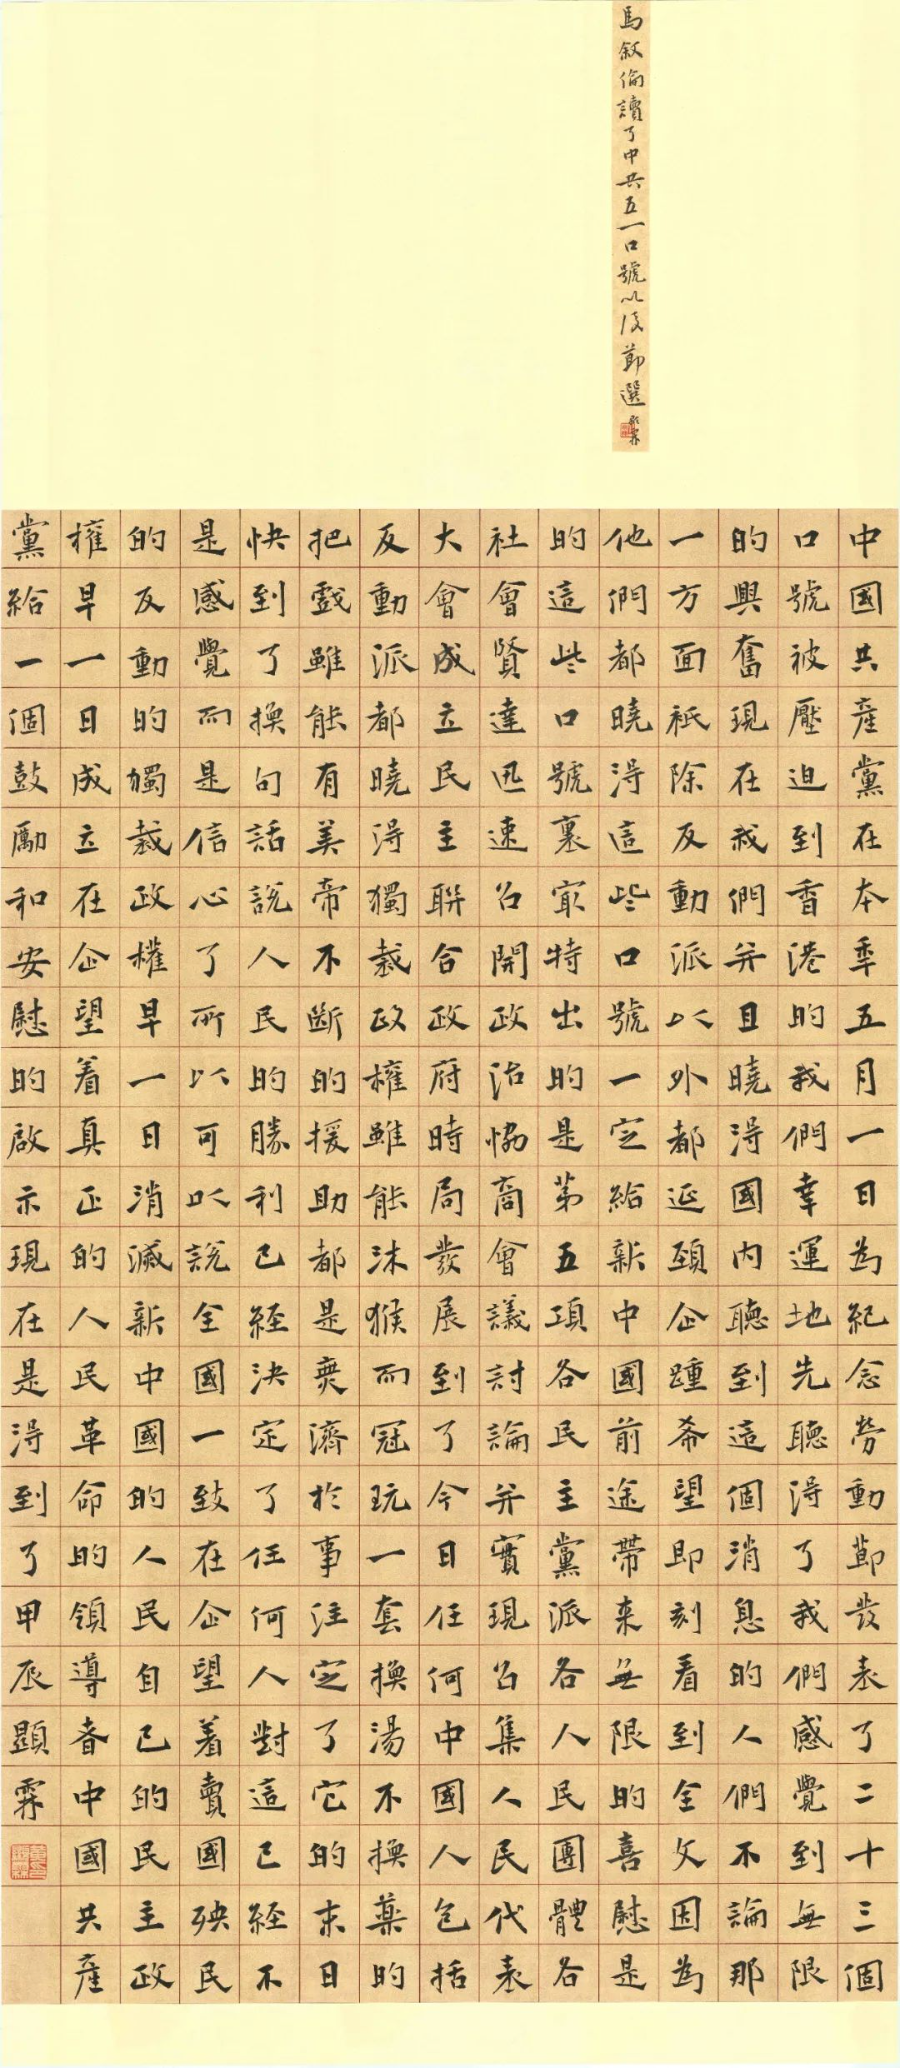 馬叙倫讀了中共五一口號以後節選 顯霖
中國共產黨在本年五月一日為紀念勞動節發表了二十三個
口號被壓迫到香港的我們幸運地先聽得了我們感覺到無限
的興奮現在我們并且曉得國內聽到這個消息的人們不論那
一方面衹除反動派以外都延頸企踵希望即刻看到全文因為
他們都曉得這些口號一定給新中國前途帶來無限的喜慰是
的這些口號裏最特出的是第五項各民主黨派各人民團體各
社會賢達迅速召開政治協商會議討論并實現召集人民代表
大會成立民主聯合政府時局發展到了今日任何中國人包括
反動派都曉得獨裁政權雖能沐猴而冠玩一套換湯不換藥的
把戲雖能有美帝不斷的援助都是無濟於事注定了它的末日
快到了換句話說人民的勝利已經決定了任何人對這已經不
是感覺而是信心了所以可以說全國一致在企望着賣國殃民
的反動的獨裁政權早一日消滅新中國的人民自己的民主政
權早一日成立在企望着真正的人民革命的領導者中國共產
黨給一個鼓勵和安慰的啟示現在是得到了甲辰顯霖